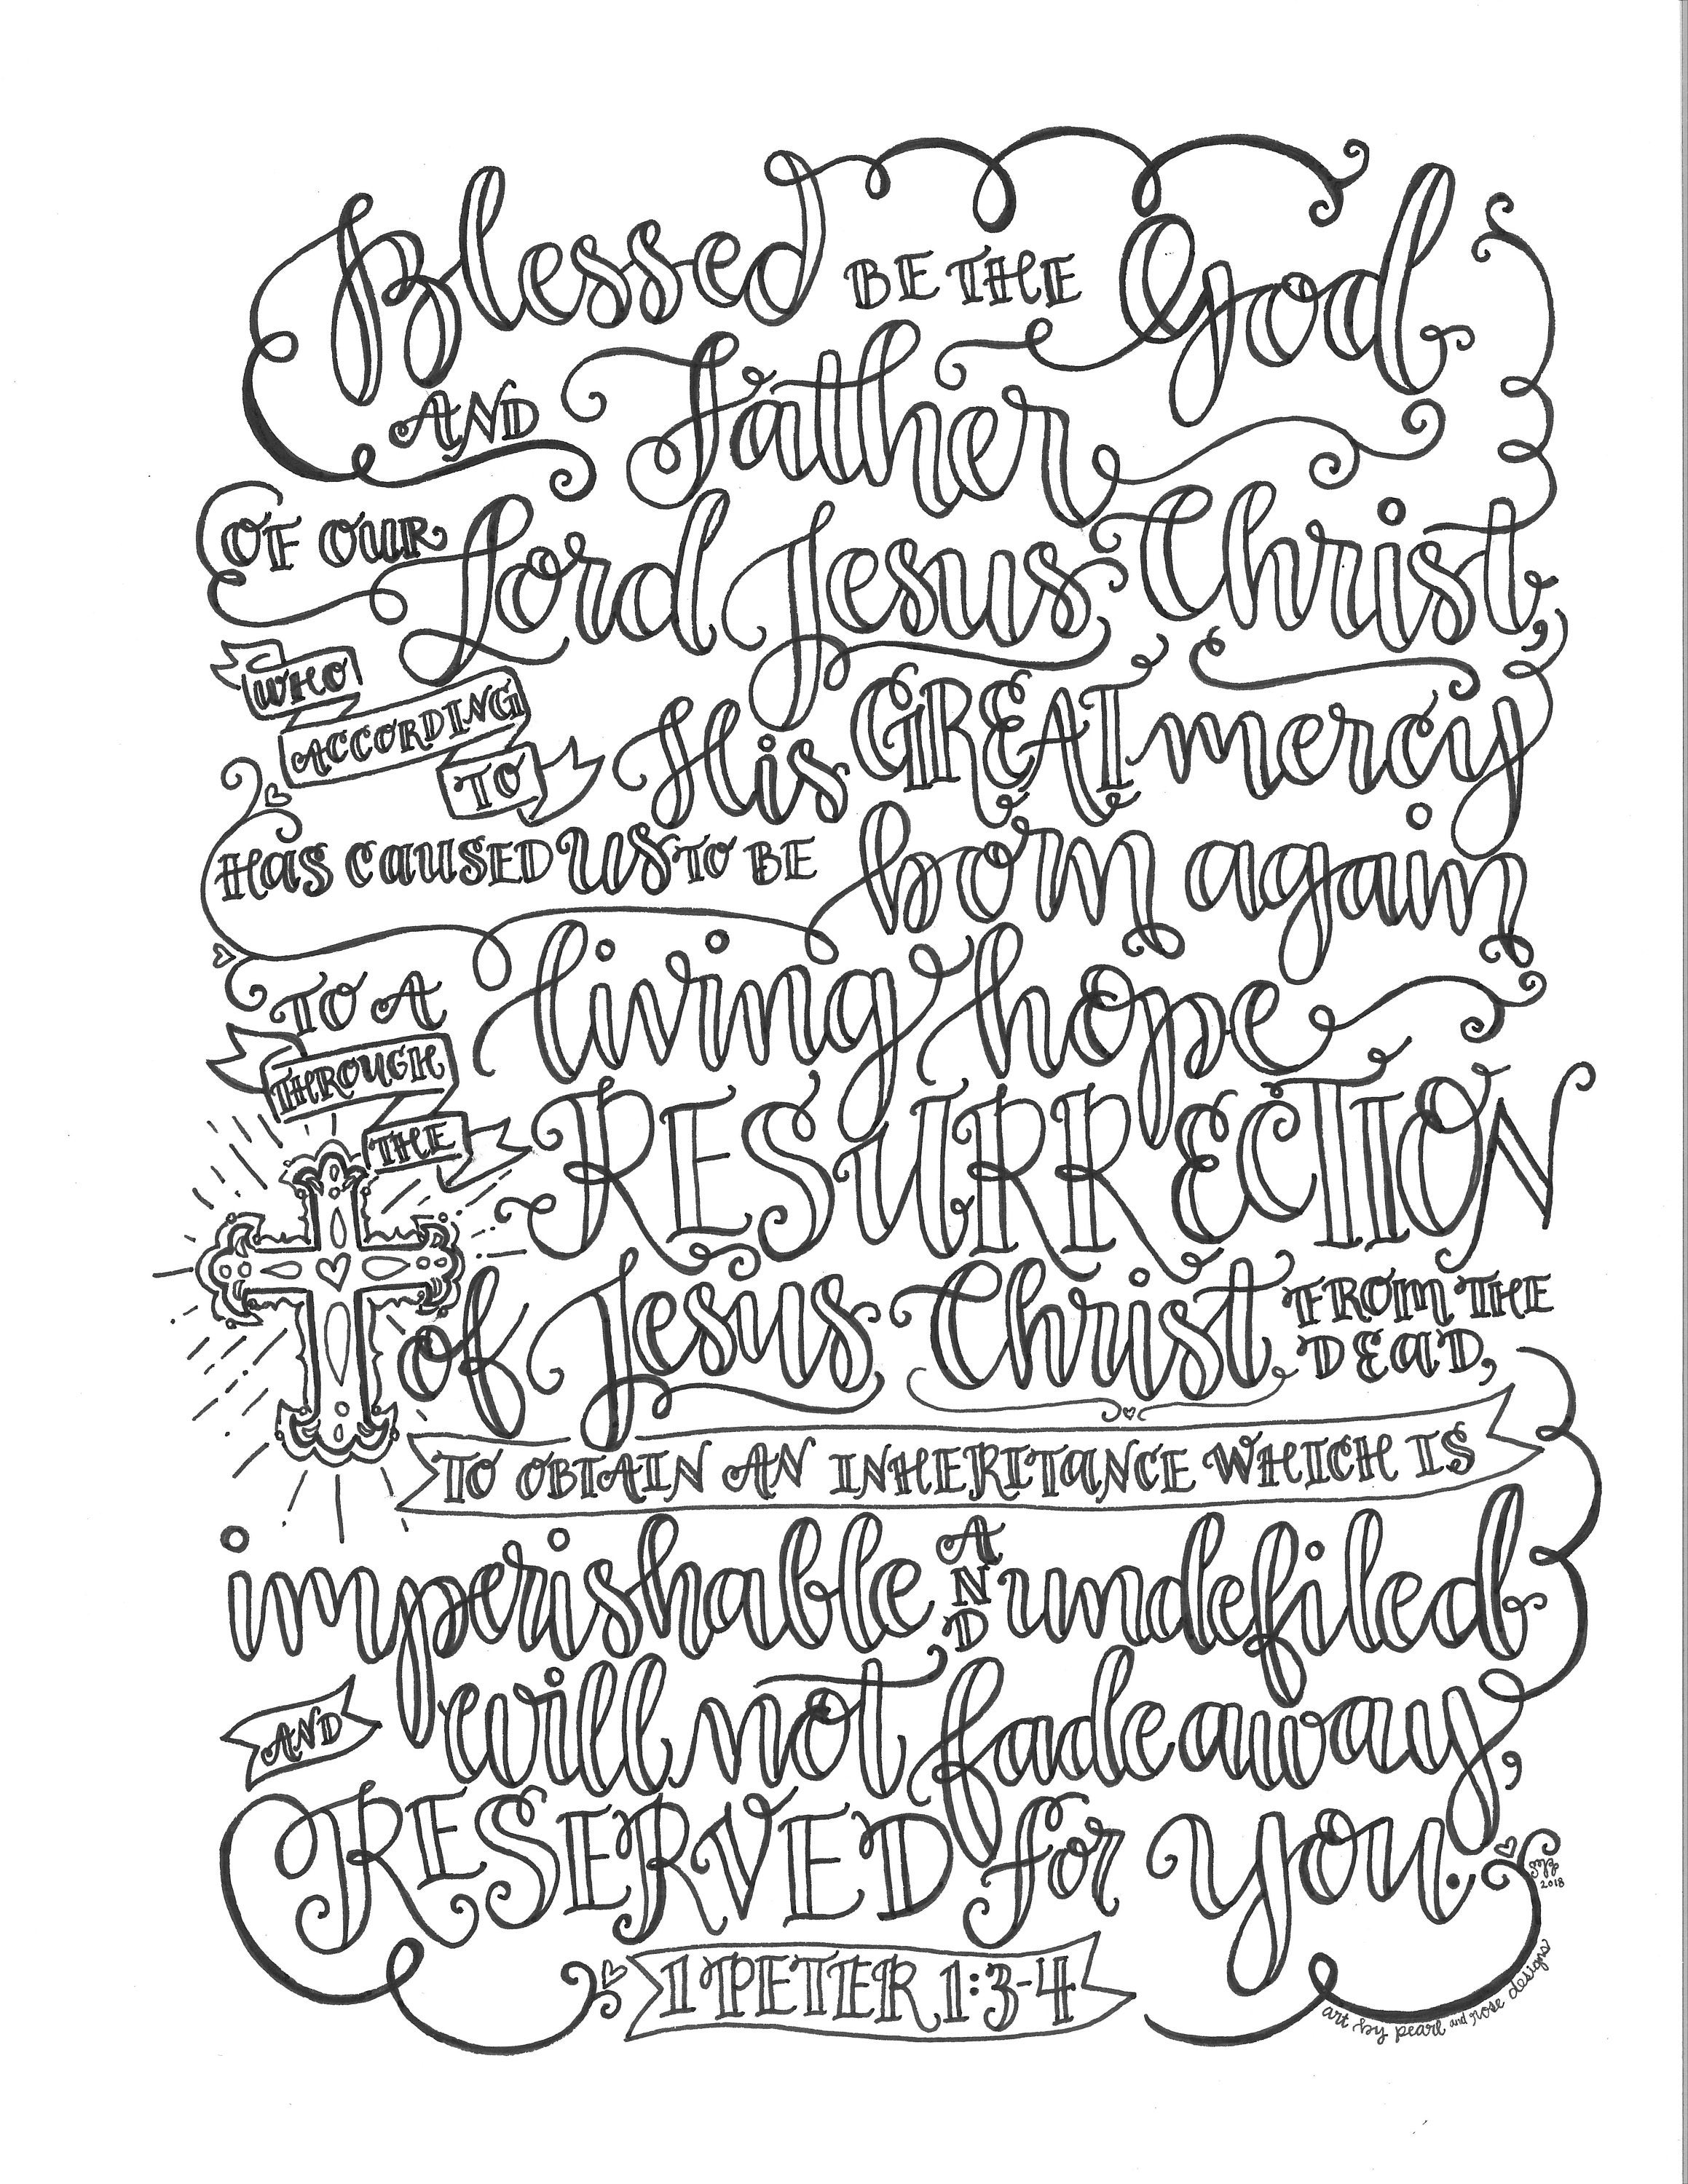 Blessed BE THE God
AND Father
OF OUR Lord Jesus Christ,
WHO
ACCORDING
TO His GREAT mercy
Has CAUSED US TO BE born again
TO A living hope
THROUGH
THE RESURRECTION
of Jesus Christ FROM THE
DEAD,
TO OBTAIN AN INHERITANCE WHICH IS
imperishable AND undefiled
AND will not fade away,
RESERVED for you.
2018
1 PETER 1:3-4
art by pearl and rose designs